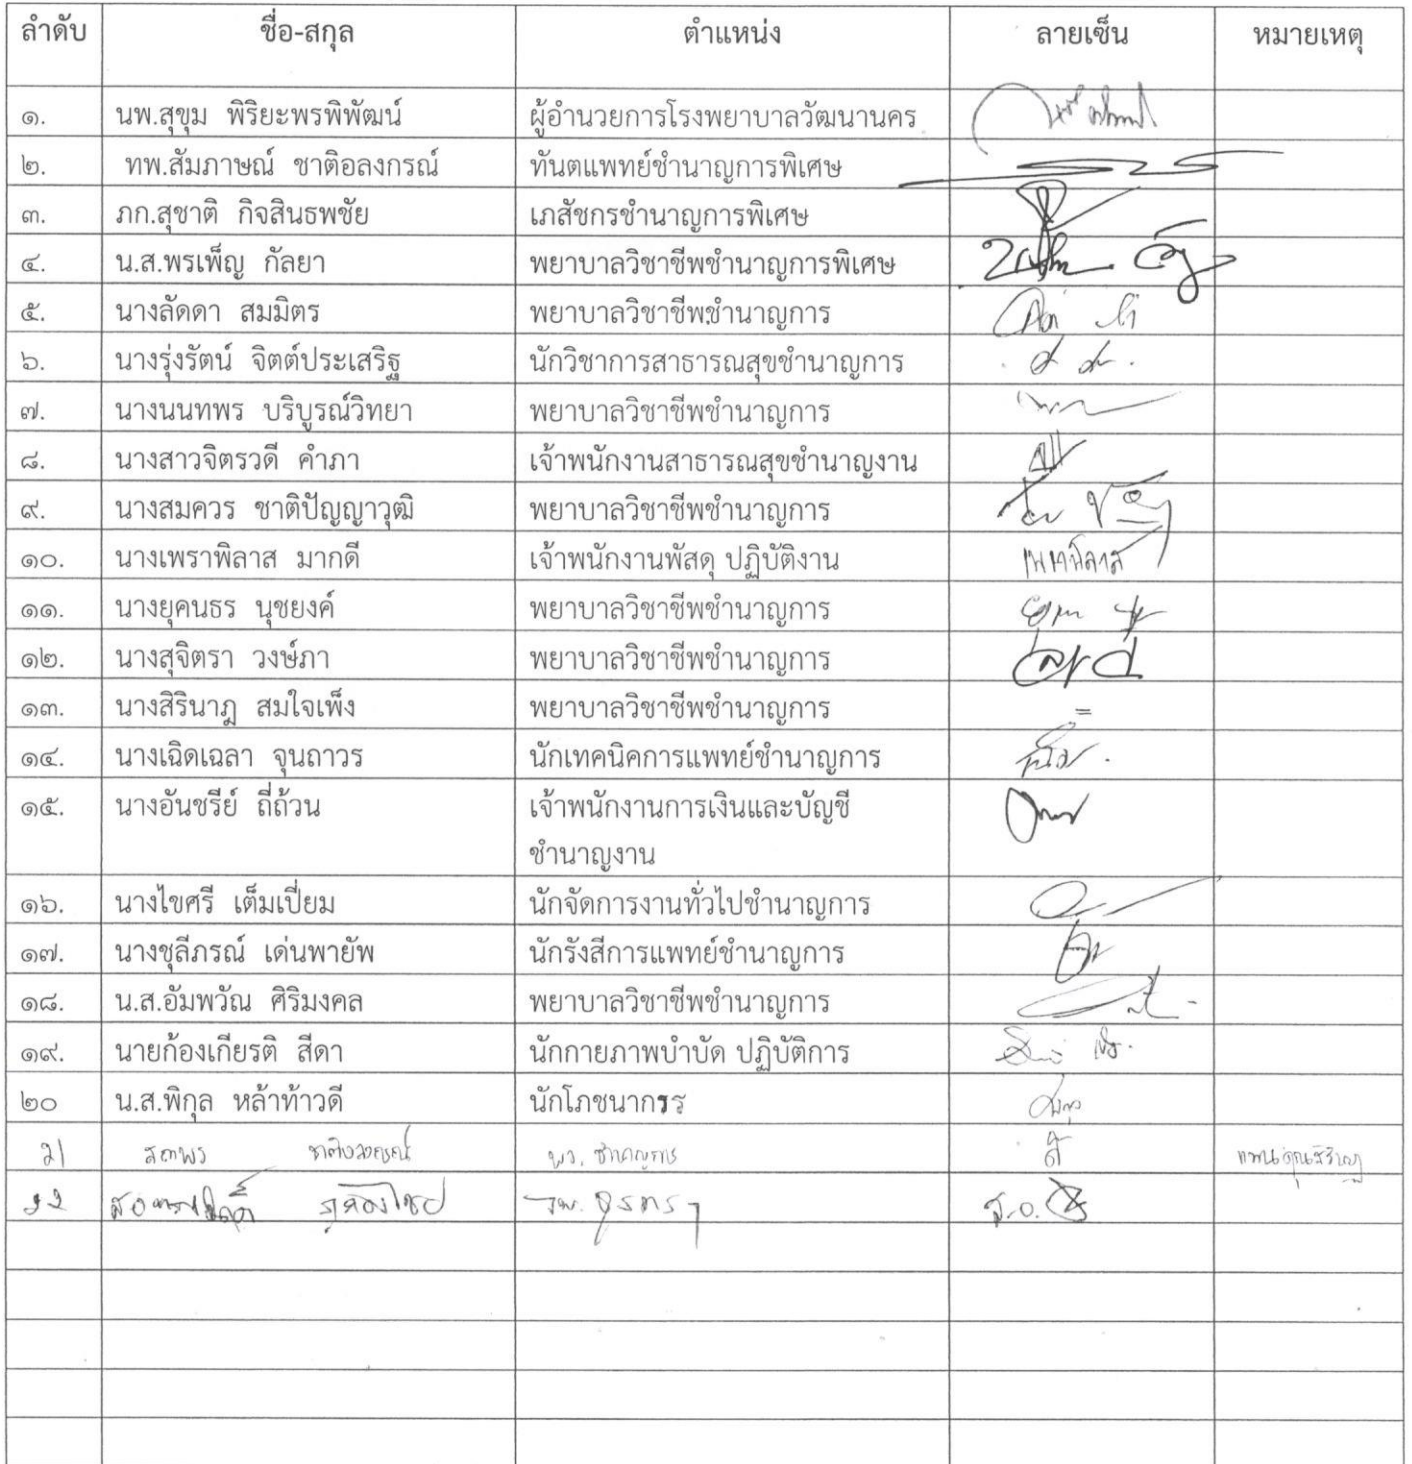 ลำดับ ชื่อ-สกุล ตำแหน่ง ลายเซ็น หมายเหตุ
๑. นพ.สุขุม พิริยะพรพิพัฒน์ ผู้อำนวยการโรงพยาบาลวัฒนานคร
๒. ทพ.สัมภาษณ์ ชาติอลงกรณ์ ทันตแพทย์ชำนาญการพิเศษ
๓. ภก.สุชาติ กิจสินธพชัย เภสัชกรชำนาญการพิเศษ
๔. น.ส.พรเพ็ญ กัลยา พยาบาลวิชาชีพชำนาญการพิเศษ
๕. นางลัดดา สมมิตร พยาบาลวิชาชีพชำนาญการ
๖. นางรุ่งรัตน์ จิตต์ประเสริฐ นักวิชาการสาธารณสุขชำนาญการ
๗. นางนนทพร บริบูรณ์วิทยา พยาบาลวิชาชีพชำนาญการ
๘. นางสาวจิตรวดี คำภา เจ้าพนักงานสาธารณสุขชำนาญงาน
๙. นางสมควร ชาติปัญญาวุฒิ พยาบาลวิชาชีพชำนาญการ
๑๐. นางเพราพิลาส มากดี เจ้าพนักงานพัสดุ ปฏิบัติงาน เพราพิลาส
๑๑. นางยุคนธร นุชยงค์ พยาบาลวิชาชีพชำนาญการ
๑๒. นางสุจิตรา วงษ์ภา พยาบาลวิชาชีพชำนาญการ
๑๓. นางสิรินาฎ สมใจเพ็ง พยาบาลวิชาชีพชำนาญการ =
๑๔. นางเฉิดเฉลา จุนถาวร นักเทคนิคการแพทย์ชำนาญการ
๑๕. นางอันชรีย์ ถี่ถ้วน เจ้าพนักงานการเงินและบัญชี
ชำนาญงาน
๑๖. นางไขศรี เต็มเปี่ยม นักจัดการงานทั่วไปชำนาญการ
๑๗. นางชุลีภรณ์ เด่นพายัพ นักรังสีการแพทย์ชำนาญการ
๑๘. น.ส.อัมพวัณ ศิริมงคล พยาบาลวิชาชีพชำนาญการ
๑๙. นายก้องเกียรติ สีดา นักกายภาพบำบัด ปฏิบัติการ
๒๐ น.ส.พิกุล หล้าท้าวดี นักโภชนากรร
21 สถาพร ชาติอลงกรณ์ พว. ชำนาญการ
22